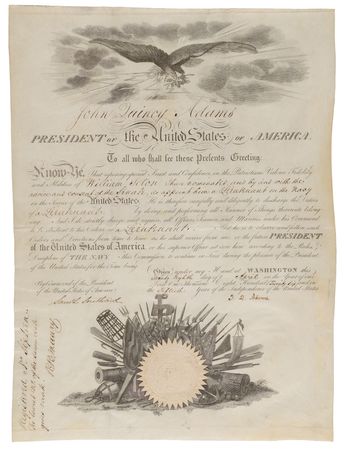 John Quincy Adams
PRESIDENT OF the United States OF AMERICA.
To all who shall see these Presents Greeting:
Know Ye, That reposing special Trust and Confidence in the Patriotism, Valour, Fidelity
and Abilities of William I have nominated and by and with the
advice and consent of the Senate, do appoint him a Lieutenant in the Navy
in the Service of the United States. He is therefore carefully and diligently to discharge the Duties
of a Lieutenant by doing and performing all Manner of things thereunto belong
ing. And I do strictly charge and require all Officers, Seamen and Marines under his Command
to be obedient to his Orders as a Lieutenant. And he is to observe and follow such
Orders and Directions from time to time as he shall receive from me or the future PRESIDENT
of the United States of America, or his superior Officer set over him according to the Rules &
Discipline of THE NAVY. This Commission to continue in force during the pleasure of the President
of the United States for the time being.
Given under my Hand at WASHINGTON this
day of in the Year of our
Lord One Thousand Eight Hundred and in
the Year of the Independence of the United States.
By Command of the President
of the United States of America
Saml. L. Southard
J. Q. Adams
Registered